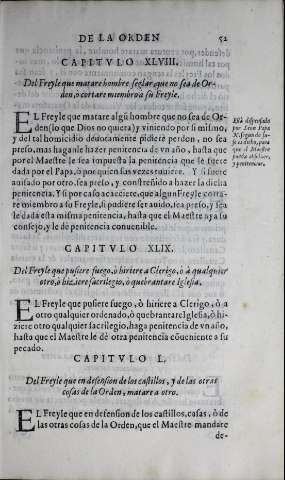 DE LA ORDEN 52
CAPITVLO XLVIII.
Del Freyle que matare hombre seglar, que no sea de Or-
den, ò cortare miembro à su Freyle.
EL Freyle que matare algũ hombre que no sea de Or-
den (lo que Dios no quiera) y viniendo por si mismo,
y del tal homicidio deuotamente pidiere perdon, no sea
preso, mas haganle hazer penitencia de vn año, hasta que
por el Maestre le sea impuesta la penitencia que le fuere
dada por el Papa, ò por quien sus vezes tuuiere. Y si fuere
auisado por otro, sea preso, y constreñido a hazer la dicha
penitencia. Y si por caso acaeciere, que algun Freyle corta-
re miembro a su Freyle, si pudiere ser auido, sea preso, y sea
le dada esta misma penitencia, hasta que el Maestre aya su
consejo, y le dè penitencia conuenible.
Està dispensado
por Leon Papa
X. segun de su-
so es dicho, para
que el Maestre
pueda absoluer,
y penitenciar.
CAPITVLO XLIX.
Del Freyle que pusiere fuego, ò hiriere a Clerigo, ò à qualquier
otro, ò hiziere sacrilegio, ò quebrantare Iglesia.
EL Freyle que pusiere fuego, ò hiriere a Clerigo, ò a
otro qualquier ordenado, ò quebrantare Iglesia, ò hi-
ziere otro qualquier sacrilegio, haga penitencia de vn año,
hasta que el Maestre le dè otra penitencia cõueniente a su
pecado.
CAPITVLO L.
Del Freyle que en defension de los castillos, y de las otras
cosas de la Orden, matare a otro.
EL Freyle que en defension de los castillos, casas, ò de
las otras cosas de la Orden, que el Maestre mandare
de-